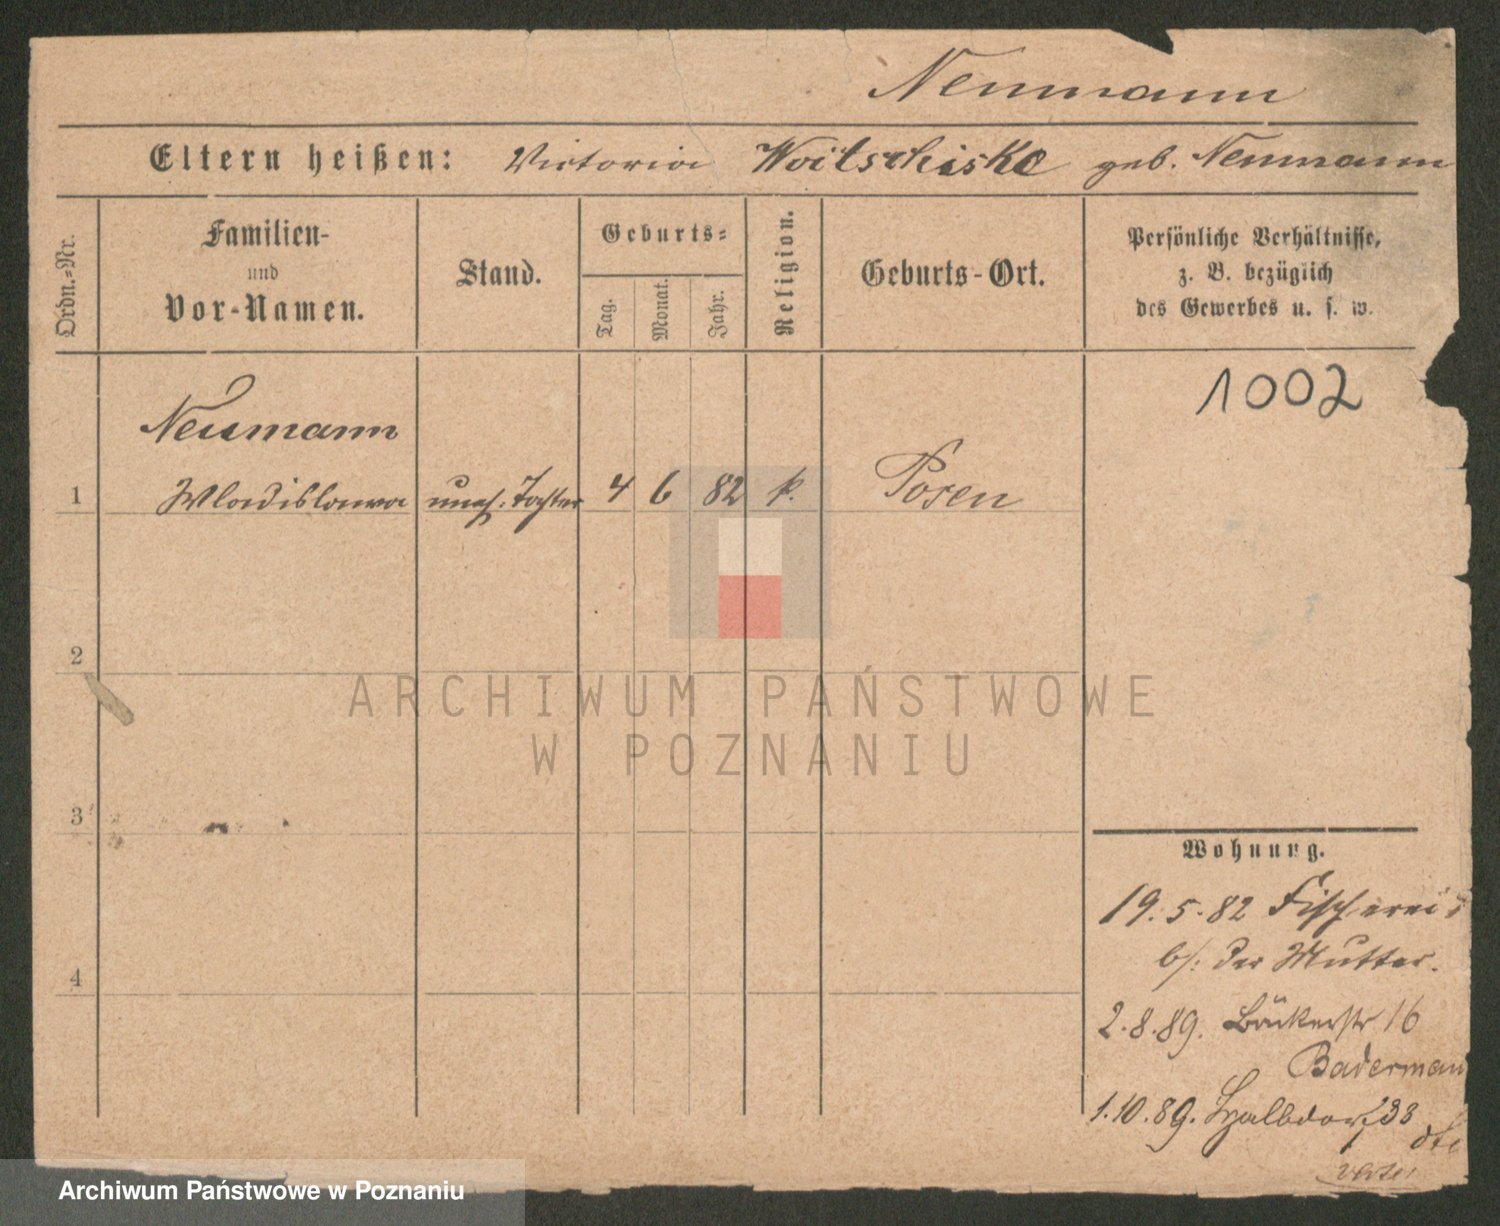 Neumann
Eltern heißen: Victoria Woitschiske geb. Neumann
Ordn.-Nr.
Familien-
und
Vor-Namen.
Stand.
Geburts-
Tag.
Monat.
Jahr.
Religion.
Geburts-Ort.
Persönliche Verhältnisse,
z. B. bezüglich
des Gewerbes u. s. w.
1002
Neumann
1 Wladislawa uneh. Tochter 4 6 82 k. Posen
2
ARCHIWUM PAŃSTWOWE
W POZNANIU
3
4
Wohnung.
19.5.82 Fischerei
b/: der Mutter.
2.8.89. Bäckerstr 16
Baderman
1.10.89. Halbdorf 33
Archiwum Państwowe w Poznaniu